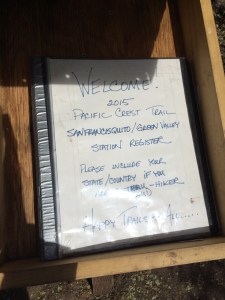 WELCOME!
2015
PACIFIC CREST TRAIL
SAN FRANCISQUITO/GREEN VALLEY
STATION REGISTER
PLEASE INCLUDE YOUR
STATE/COUNTRY IF YOU
THRU-HIKER
HAPPY TRAILS ALL.....